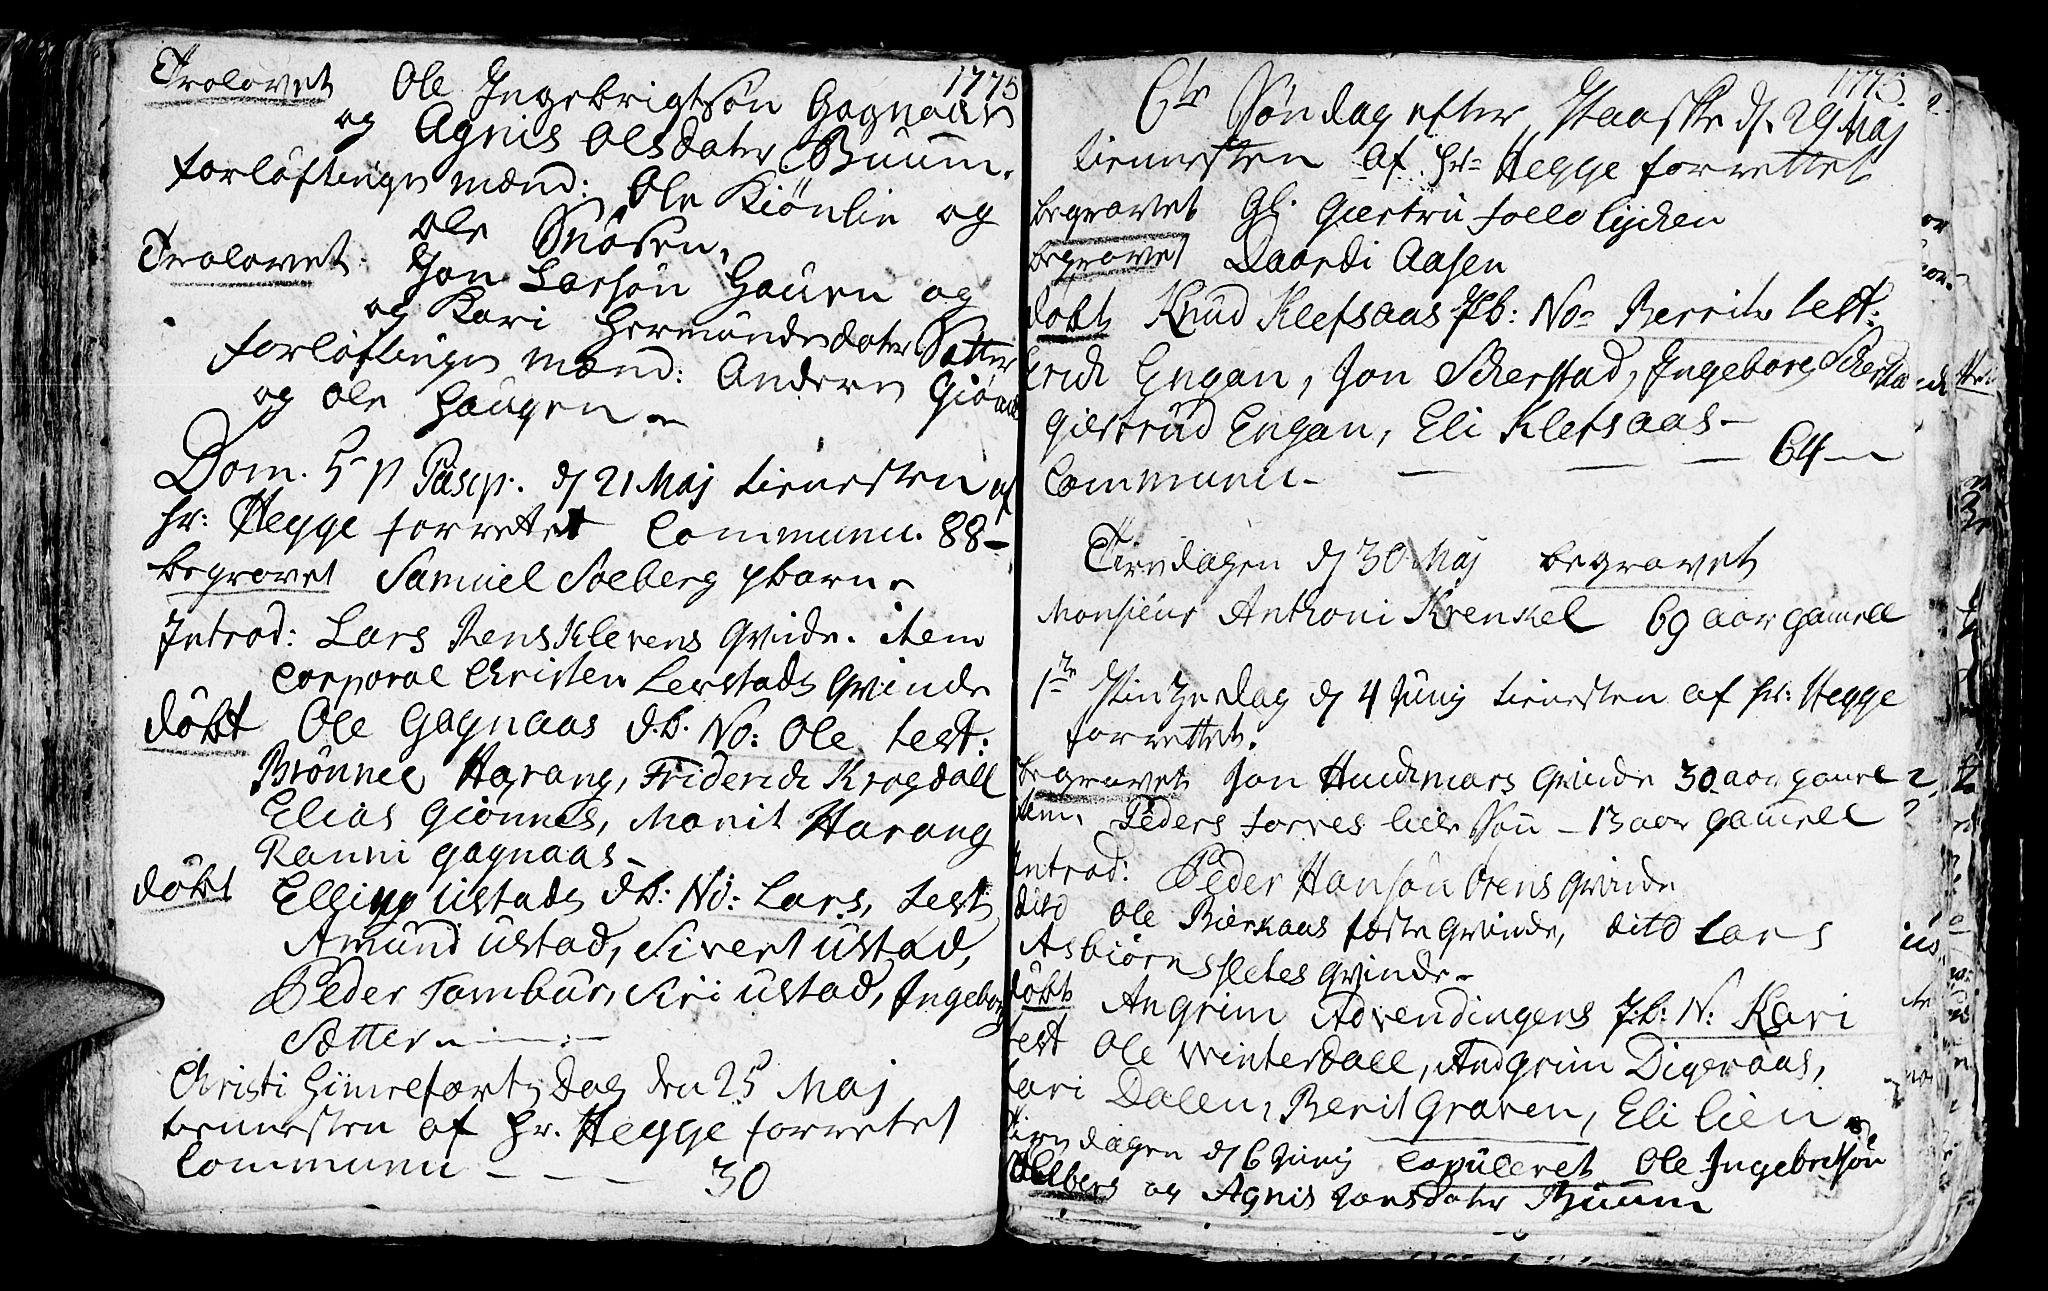 1775
Trolovet Ole Ingebrigtsøn Gagnaas
og Agnis Olsdater Buum.
forløftings mænd: Ole Kiønlie og
Ole Snøsen,
Trolovet. Jon Larsøn Hauen og
og Kari Hermundsdater Sætter
forløftings mænd: Anders Giønnes
og Ole Haugen
Dom. 5 p Pasep. d 21 Maj tienesten af
Hr: Hegge forrettet Communi. 88 -
begravet Samuel Soeberg pbarn
Introd: Lars RensKlevens Qvinde. item
Corporal Christen Lerstads Qvinde
døbt Ole Gagnaas d.b. No: Ole test:
Brønnel Harang, Friderich Krogdall
Elias Giønnes, Marit Harang
Ranni gagnaas -
døbt Elling Ustads db: No: Lars, test
Amund Ustad, Sivert Ustad,
Peder Tambur, Siri Ustad, Ingeborg
Sætter
Christi Himmelfarts Dag den 25 Maj
tienesten af Hr. Hegge forrettet
Communi - - - - 30
1775.
6te Søndag efter Paaske d. 29 Maj
tienesten af Hr= Hegge forrettet
begravet Gl. Giertru follolycken
begravet Baardi Aasen
døbt Knud Klefsaas Pb: No= Berrit test:
Erich Engan, Jon Scherstad, Ingeborg Scherstad
Giertrud Engan, Eli Klefsaas -
Communi - — — — 64 —
Tirsdagen d 30 Maj begravet
Monsieur Anthoni Krenkel 69 aar gamell
1te Pintze Dag d 4 Junij tienesten af Hr: Hegge
forrettet.
begravet Jon Huchmars Qvinde 30 aar gamel
item Peders Torres liele Søn - 13 aar gamell
Introd: Peder Hansøn Orens Qvinde
dito Ole Bierkaas første Qvinde, dito Lars
Asbiørnsletes Qvinde -
døbt Angrim Advendingens P:b: N: Kari
test Ole Winterdall, Andgrim Digeraas,
Kari Dalen, Berit Graven, Eli lien
Tirsdagen d 6 Junij Copuleret Ole Ingebretsøn
Oelberg og Agnis Jonsdater Buum